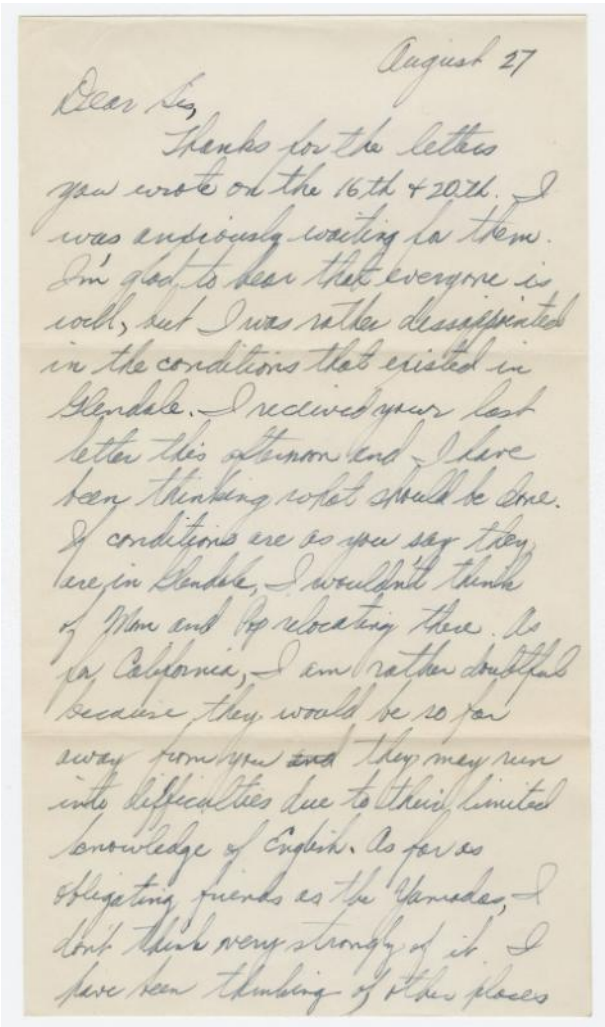 August 27
Dear Sis,
Thanks for the letters
you wrote on the 16th + 20th. I
was anxiously waiting for them.
I'm glad to hear that everyone is
well, but I was rather dissappointed
in the conditions that existed in
Glendale. I received your last
letter this afternoon and I have
been thinking what should be done.
If conditions are as you say they
are in Glendale, I wouldn't think
of Mom and Pop relocating there. As
for California, I am rather doubtful
because they would be so far
away from you and they may run
into difficulties due to their limited
knowledge of English. As far as
obligating friends as the Yamadas, I
don't think very strongly of it. I
have been thinking of other places